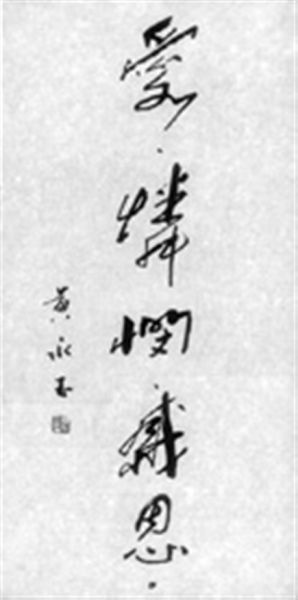 愛·憐憫·感恩·
黄永玉